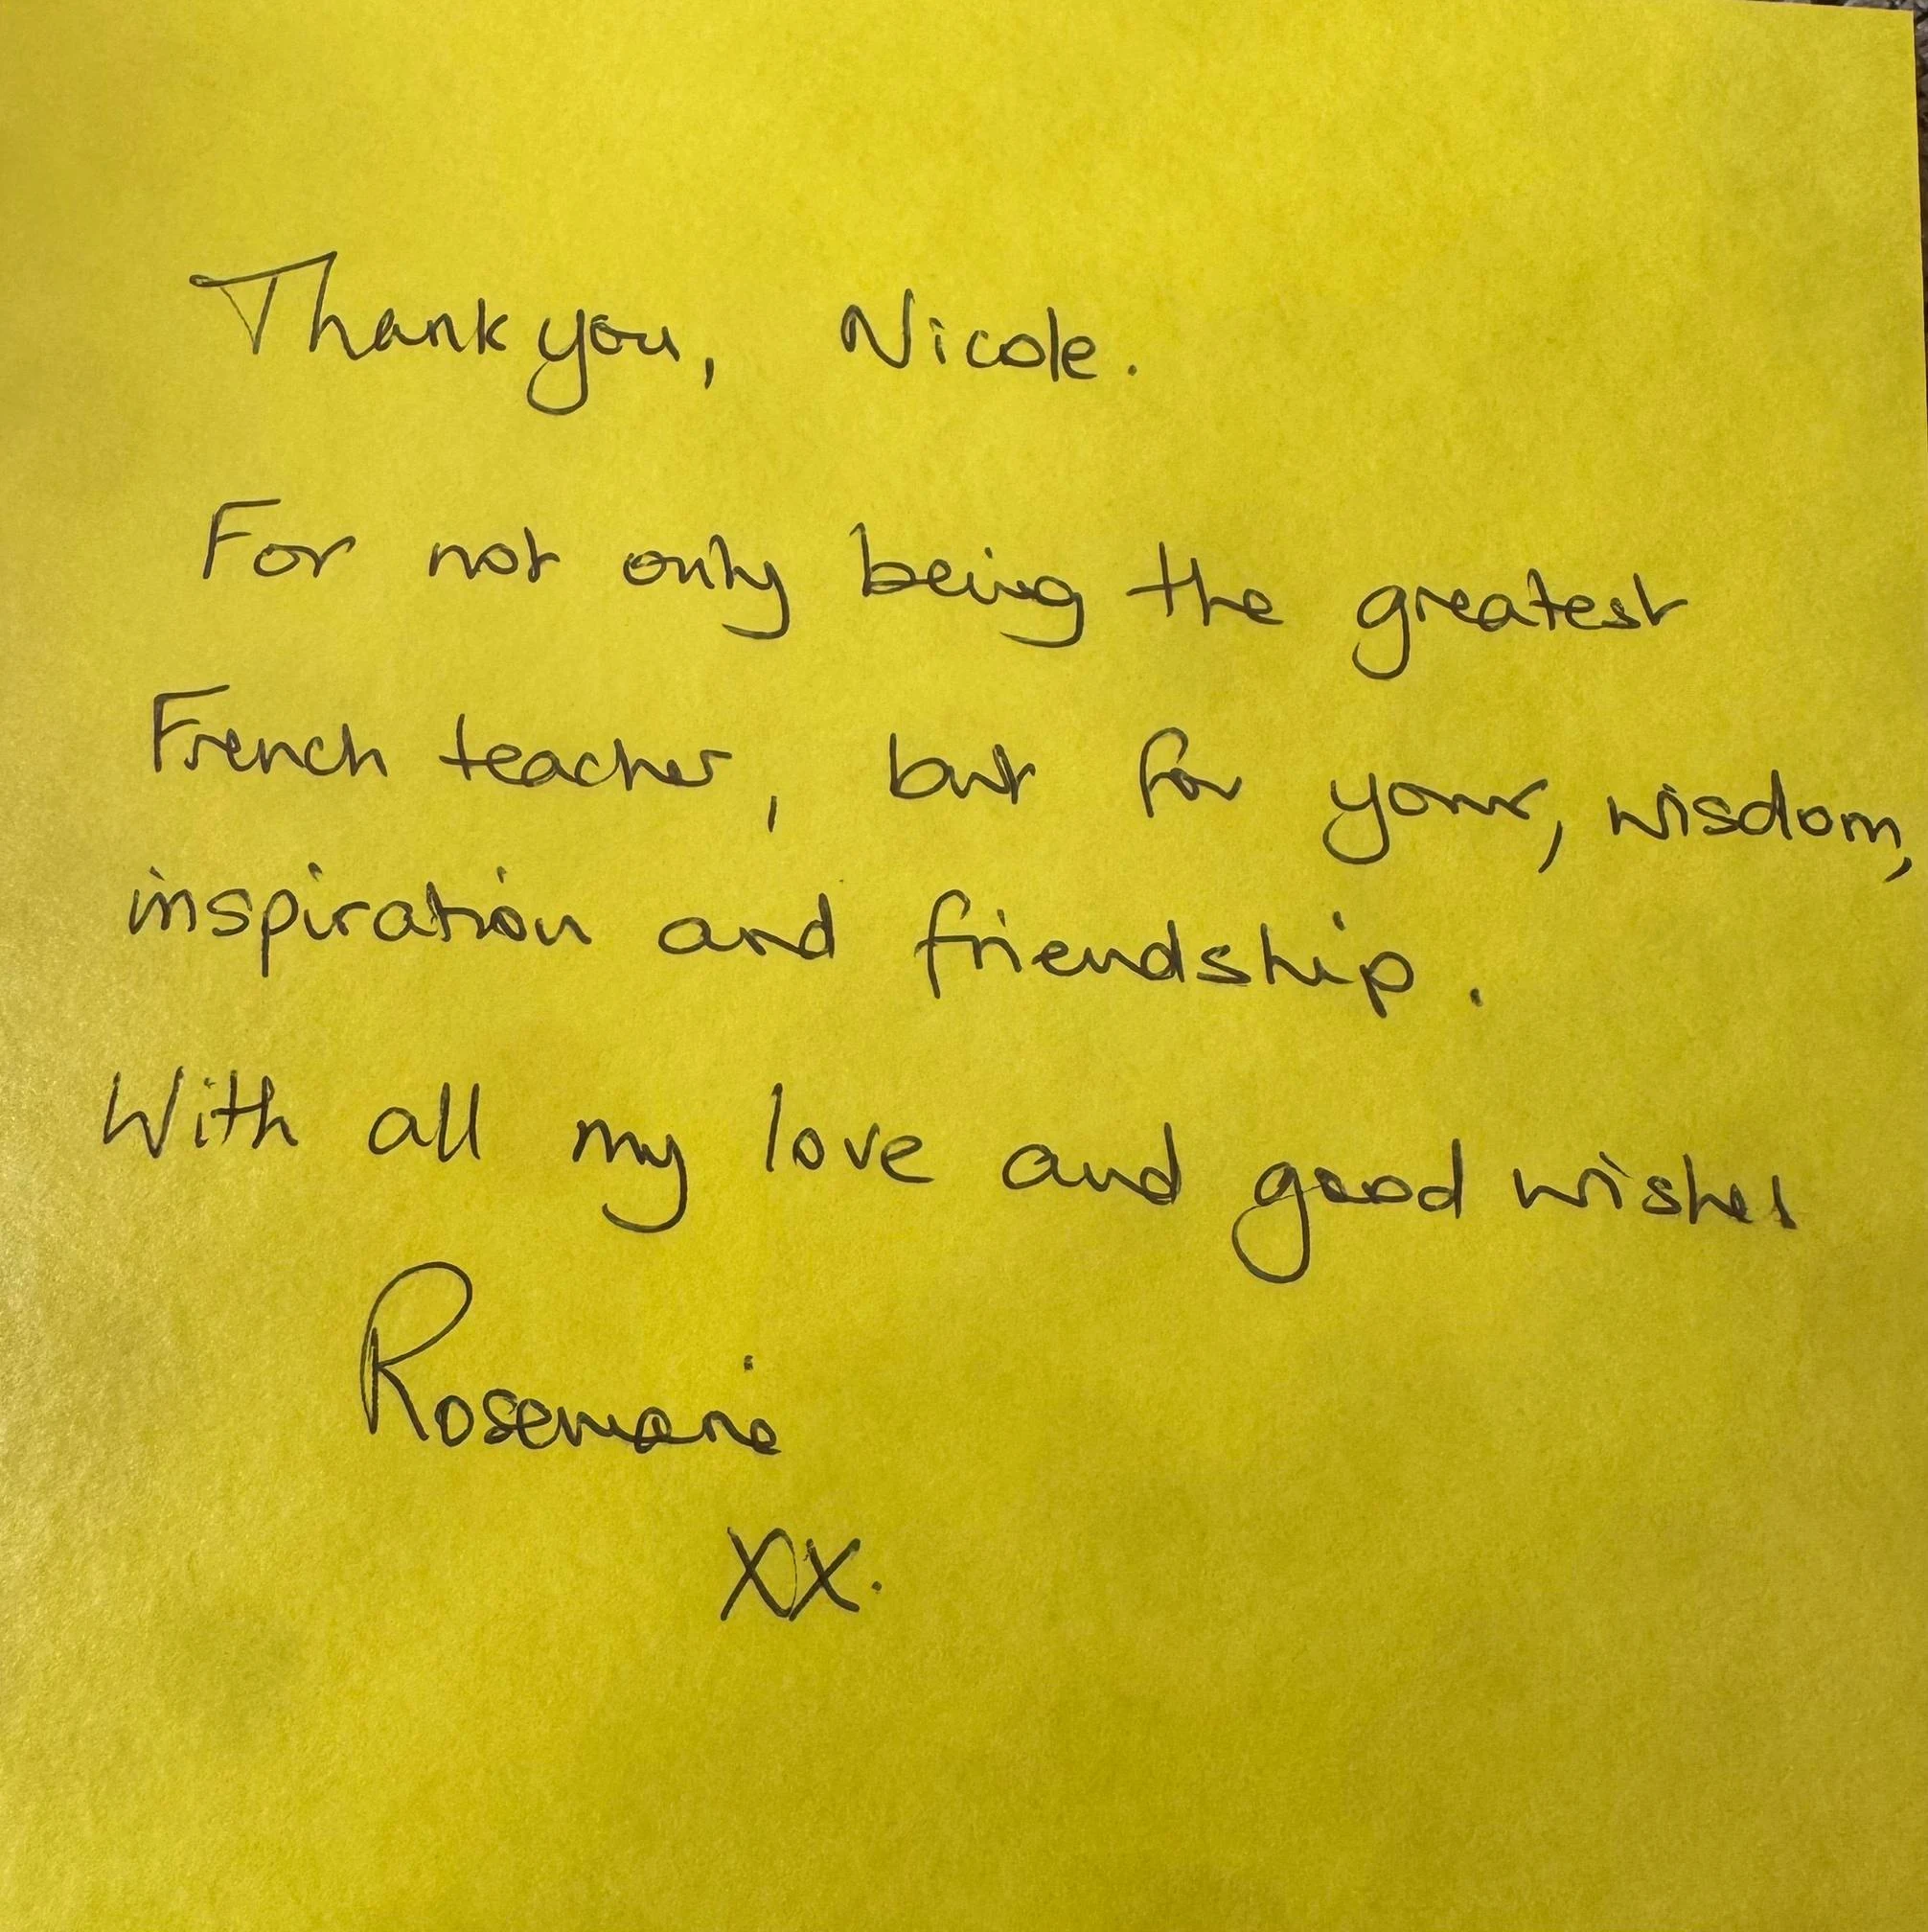 Thank you, Nicole.
For not only being the greatest
French teacher, but for your, wisdom,
inspiration and friendship.
With all my love and good wishes
Rosemarie
XX.